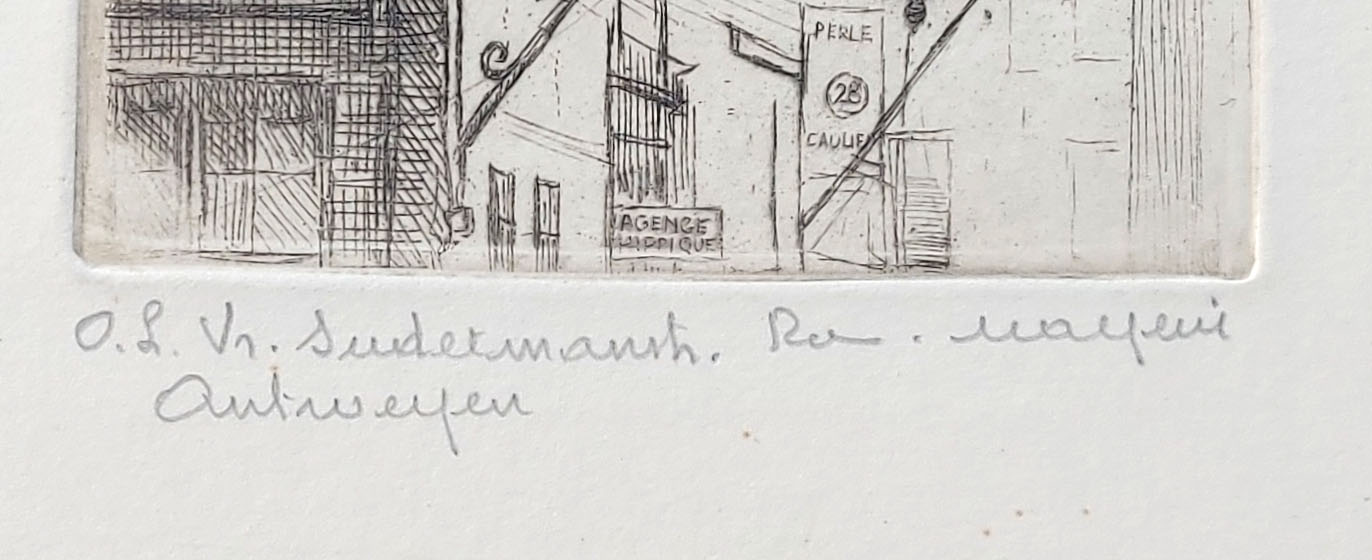 PERLE
28
CAULIER
AGENCE
HIPPIQUE
O.L. Vr. Sudermanstr.
Antwerpen